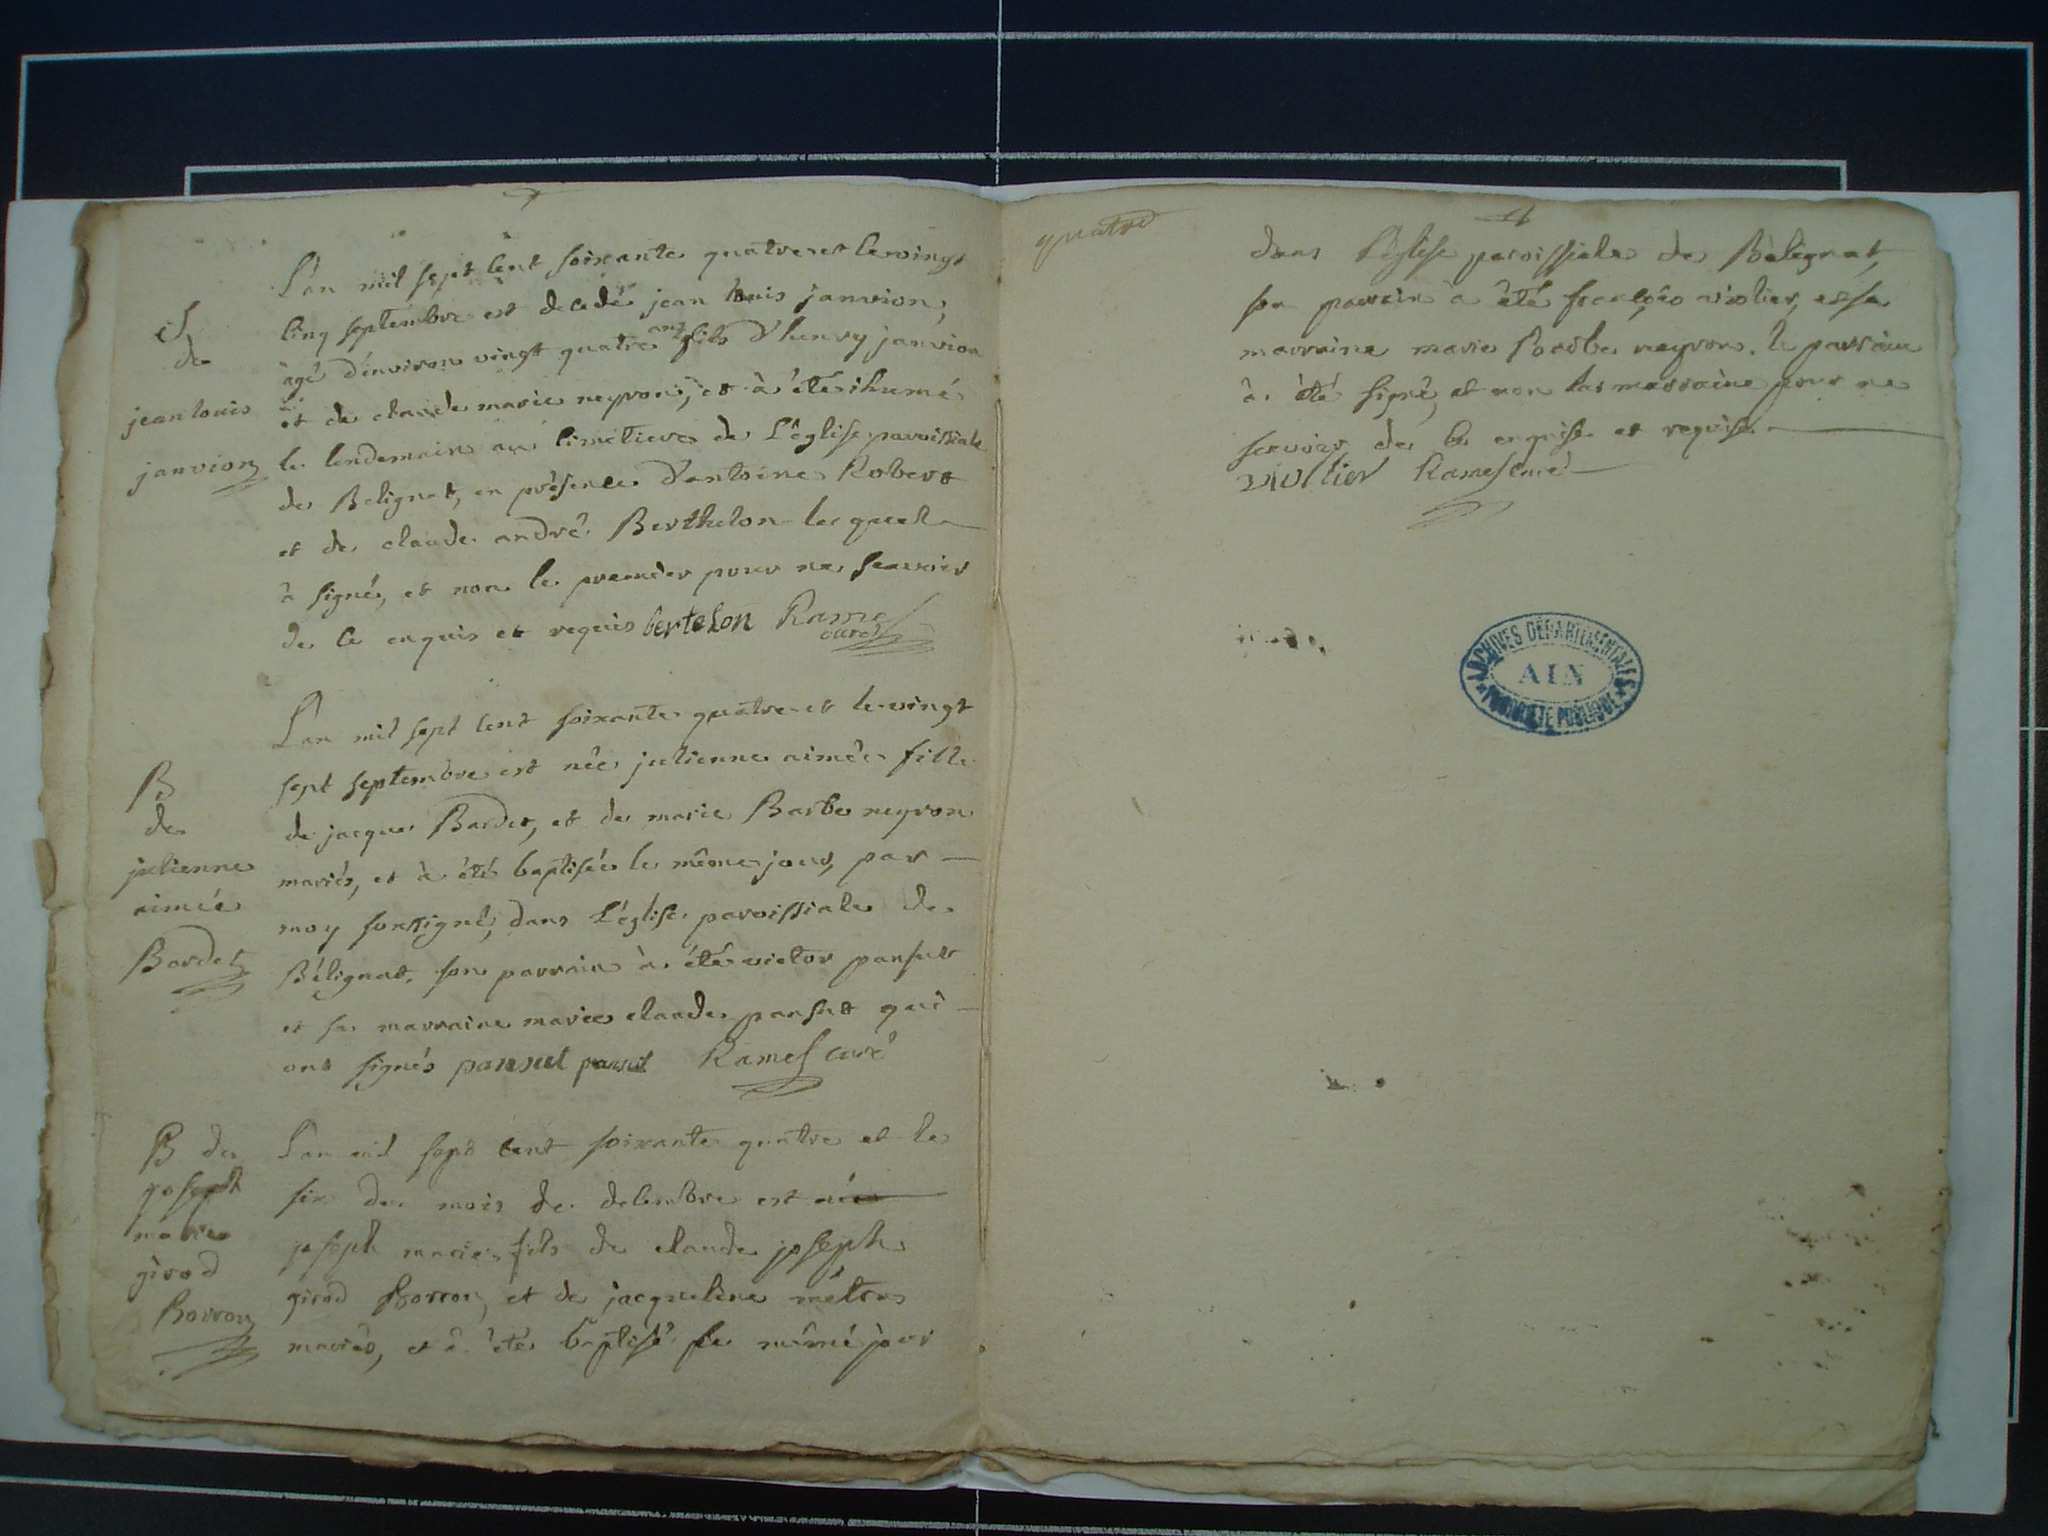 S
de
jean louis
janvion
L'an mil sept cent soixante quatre et le vingt
cinq septembre est decedé jean louis janvion,
agé d'environ vingt quatre ans fils d'henry janvion
et de claude marie neyron, et à été ihumé
le lendemain au cimetiere de L'église paroissiale
de Belignat, en présence d'antoine Robert
et de claude andré Berthelon lequel
à signé, et non le premier pour ne scavoir
de ce enquis et requis bertelon Rame
curé
B
de
julienne
aimée
Bardet
L'an mil sept cent soixante quatre et le vingt
sept septembre est née julienne aimée fille
de jacque Bardet, et de marie Barbe neyron
mariés, et à été baptisée le même jour, par
moy soussigné, dans L'église paroissiale de
Bélignat. son parrain à été victor pansut
et sa marraine marie claude pansut qui
ont signés pansut pansut Rames curé
B de
joseph
marie
girod
Borron
L'an mil sept cent soixante quatre et le
six du mois de decembre est né
joseph marie fils de claude joseph
girod Borron, et de jacqueline métras
mariés, et à été baptisé le même jour
quatre
dans L'église paroissiale de Bélignat,
son parrain à été françois violier, et sa
marraine marie Barbe neyron. le parrain
à été signé, et non la marraine pour ne
scavoir de ce enquise et requise
violier Rames curé
ARCHIVES DÉPARTEMENTALES
AIN
PROPRIÉTÉ PUBLIQUE